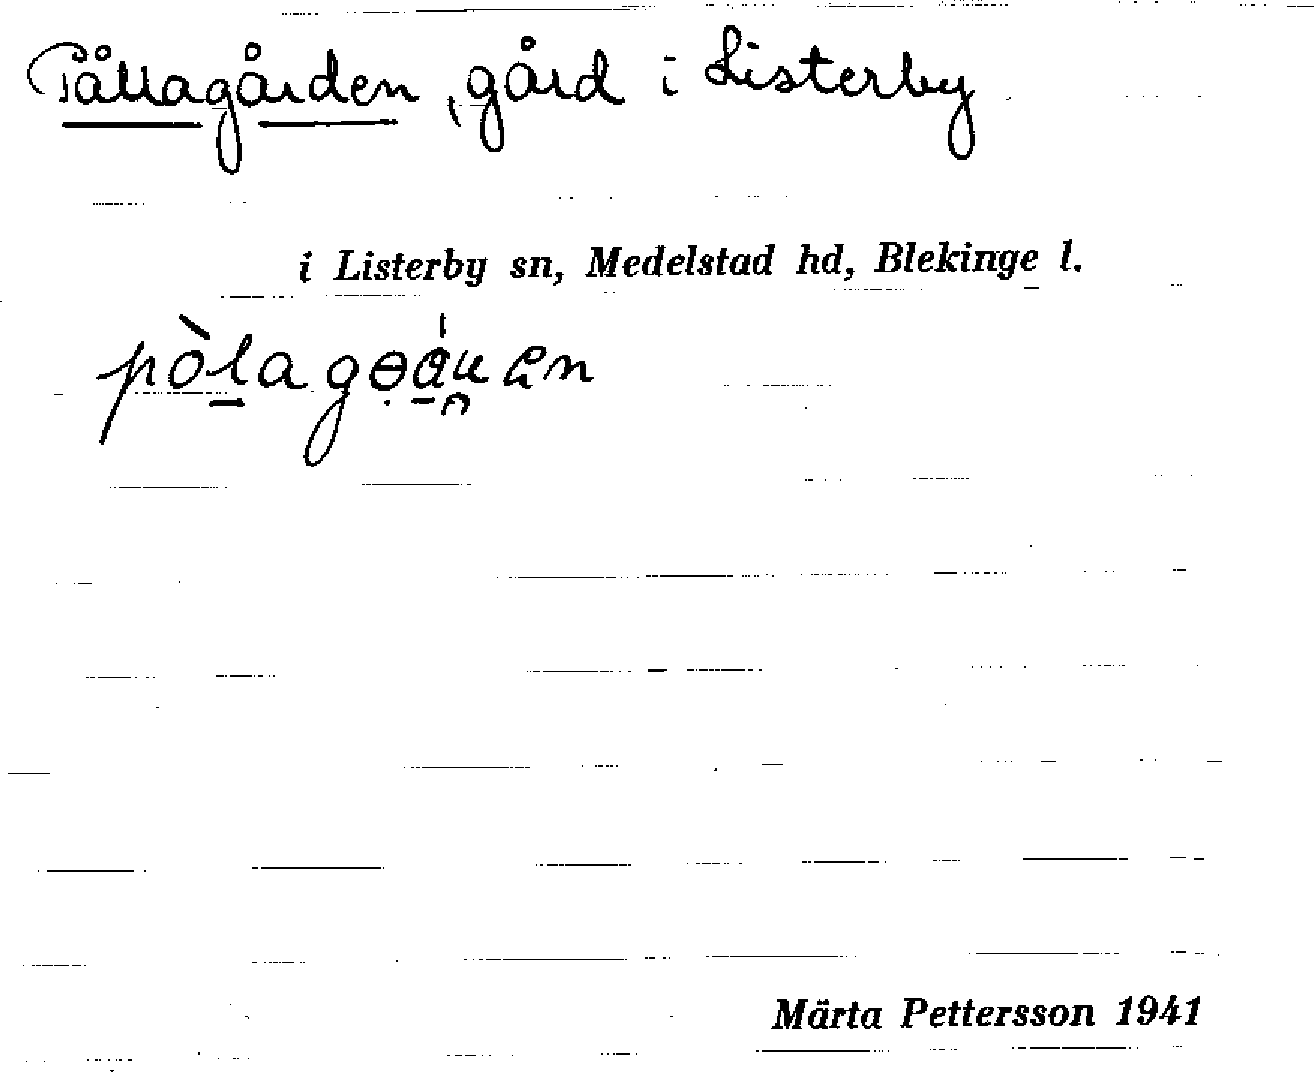 Pållagården, gård i Listerby
i Listerby sn, Medelstad hd, Blekinge l.
Märta Pettersson 1941